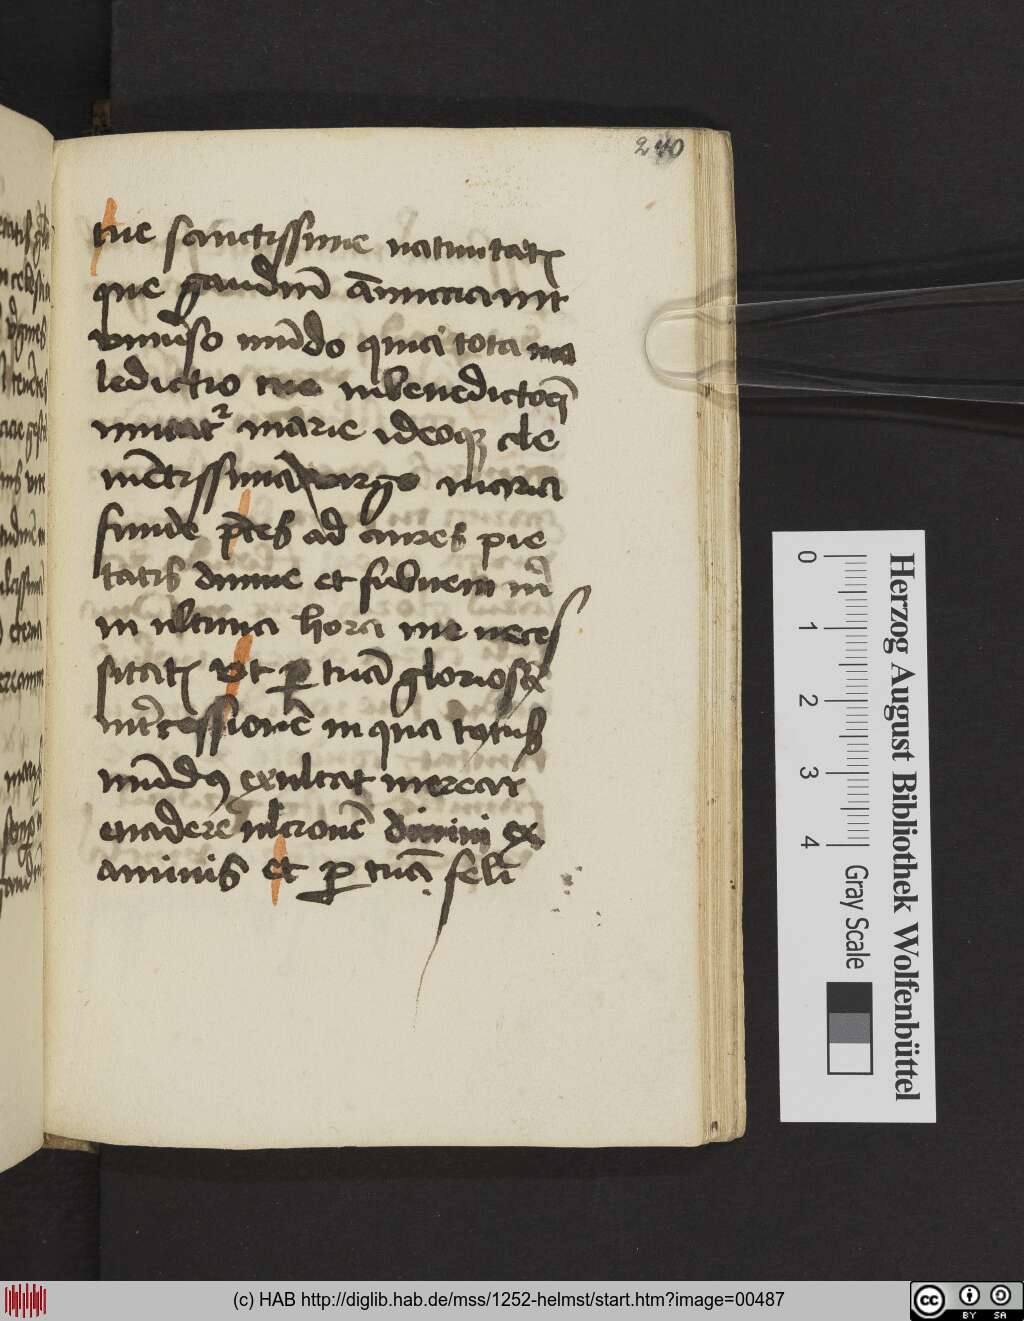 240
tue sanctissime natiuitatꝭ
que gaudiū ānucciauit
vniu̕so mūdo quia tota ma
ledictio eue inbenedictōeʒ
mutat᷑ marie ideoqꝫ cle
mētissima virgo maria
funde p̄ces ad aures pie
tatis diuine et subueni m̄
in vltima hora me neces
sitatꝭ vt ꝑ tuā gloriosā
int̄cessionē in qua totus
mūdꝰ exultat merear
euadere vlcionē diuini ex
aminis et ꝑ tuā feli
Herzog August Bibliothek Wolfenbüttel
0 1 2 3 4
Gray Scale
(c) HAB http://diglib.hab.de/mss/1252-helmst/start.htm?image=00487
cc BY SA